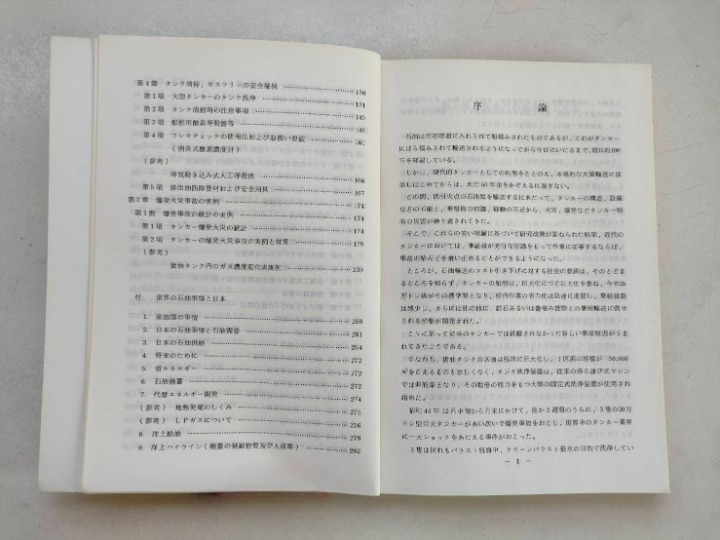 第4節 タンク清掃、ガスフリーの安全確保 130
第1項 大型タンカーのタンク洗浄 131
第2項 タンク清掃時の注意事項 145
第3項 船舶用酸素呼吸器等
第4項 フレキチェックの使用法および取扱い要領
(消炎式酸素濃度計)
(参考)
呼気吹き込み式人工呼吸法 167
第5項 排出油防除資材および安全用具
第7章 爆発火災事故の実例
第1節 爆発事故の統計の実例
第1項 タンカーの爆発火災の統計 171
第2項 タンカーの爆発火災事故の実例と対策
(参考)
貨油タンク内のガス濃度変化実施例 239
付 世界の石油事情と日本
1. 産油国の事情 258
2. 日本の石油事情と石油需要 261
3. 日本の石油供給 264
4. 将来のために 272
5. 省エネルギー 272
6. 石油備蓄 272
7. 代替エネルギー開発 274
(参考) 地熱発電のしくみ 274
(参考) LPガスについて 275
8. 洋上給油 279
9. 洋上ハイライン(軽量の補給物資及び人員等) 282
序論
石油は当初容器に入れられて船積みされたものであるが、これがタンカー
にばら積みされて輸送されるようになってから今日にいたるまで、既に約100
年を経過している。
しかし、現代的タンカーとしての形態をととのえ、本格的な大量輸送に従
事しはじめてからは、未だ60年余をかぞえるに過ぎない。
この間、低引火点の石油類を輸送するにあたって、タンカーの構造、設備
などの不備と、乗組員の知識、経験の不足から、火災、爆発などタンカー特
有の災害が繰り返されてきた。
そこで、これらの苦い経験に基づいて研究改善が重ねられた結果、近代の
タンカーにおいては、乗組員が充分な知識をもって作業に従事するならば、
事故の殆んどを喰い止めることができるようになった。
ところが、石油輸送のコスト引き下げに対する社会の要請は、そのとどま
るところを知らず、タンカーの船型は、巨大化につぐ巨大化を重ね、今や25
万トン級がその標準型となり、荷役作業の省力化は急速に進展し、乗組員数
は減少し、さらには他に、鉱石あるいは撒積み貨物との兼用輸送に供で
きる船型が開発された。
ここに至って従来のタンカーでは経験されなかった新しい事故原因がうま
れてきたようである。
すなわち、貨油タンクの区画は極端に巨大化し、1区画の容積が30,000
m³をこえるものも珍しくなく、タンク洗浄装置は、従来の持ち運び式マシン
では非能率となり、その数倍の能力をもつ大型の固定式洗浄装置が使用され
始めた。
昭和44年12月中旬から月末にかけて、僅か2週間のうちに、3隻の20万
トン型巨大タンカーがあい次いで爆発事故をおこし、世界中のタンカー業界
に一大ショックをあたえる事件がおこった。
3隻は何れもバラスト航海中、クリーンバラスト張水の目的で洗浄してい
— 1 —